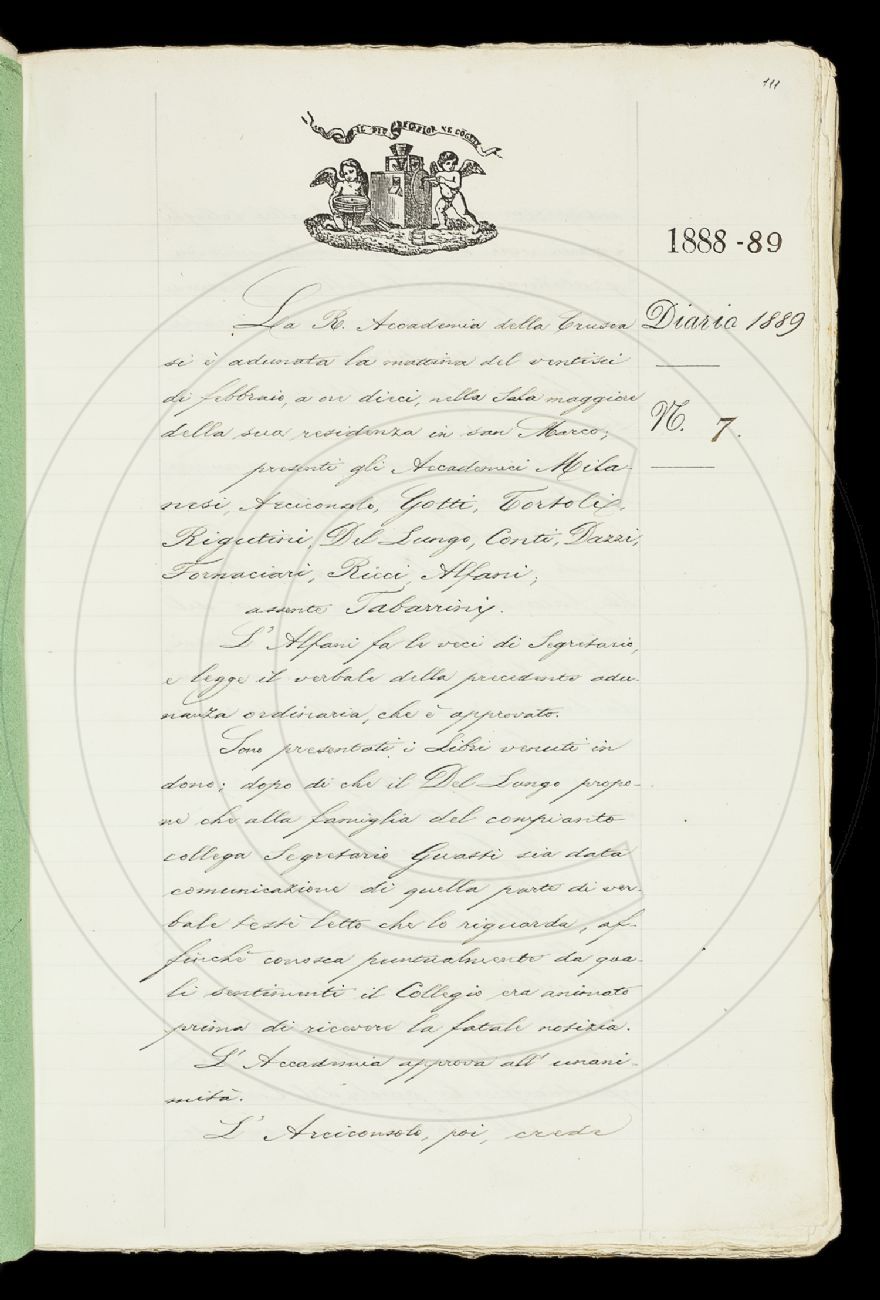 111
IL PIÙ BEL FIOR NE COGLIE
1888-89
Diario 1889
N. 7.
La R. Accademia della Crusca
si è adunata la mattina del ventisei
di febbraio, a ore dieci, nella Sala maggiore
della sua residenza in san Marco;
presenti gli Accademici Mila-
nesi, Arciconsolo, Gotti, Tortoli,
Rigutini, Del Lungo, Conti, Dazzi,
Fornaciari, Ricci, Alfani;
assente Tabarrini.
L'Alfani fa le veci di Segretario,
e legge il verbale della precedente adu-
nanza ordinaria, che è approvato.
Sono presentati i Libri venuti in
dono; dopo di che il Del Lungo propo-
ne che alla famiglia del compianto
collega Segretario Guasti sia data
comunicazione di quella parte di ver-
bale testè letto che lo riguarda, af-
finchè conosca puntualmente da qua-
li sentimenti il Collegio era animato
prima di ricevere la fatale notizia.
L'Accademia approva all'unani-
mità.
L'Arciconsolo, poi, crede